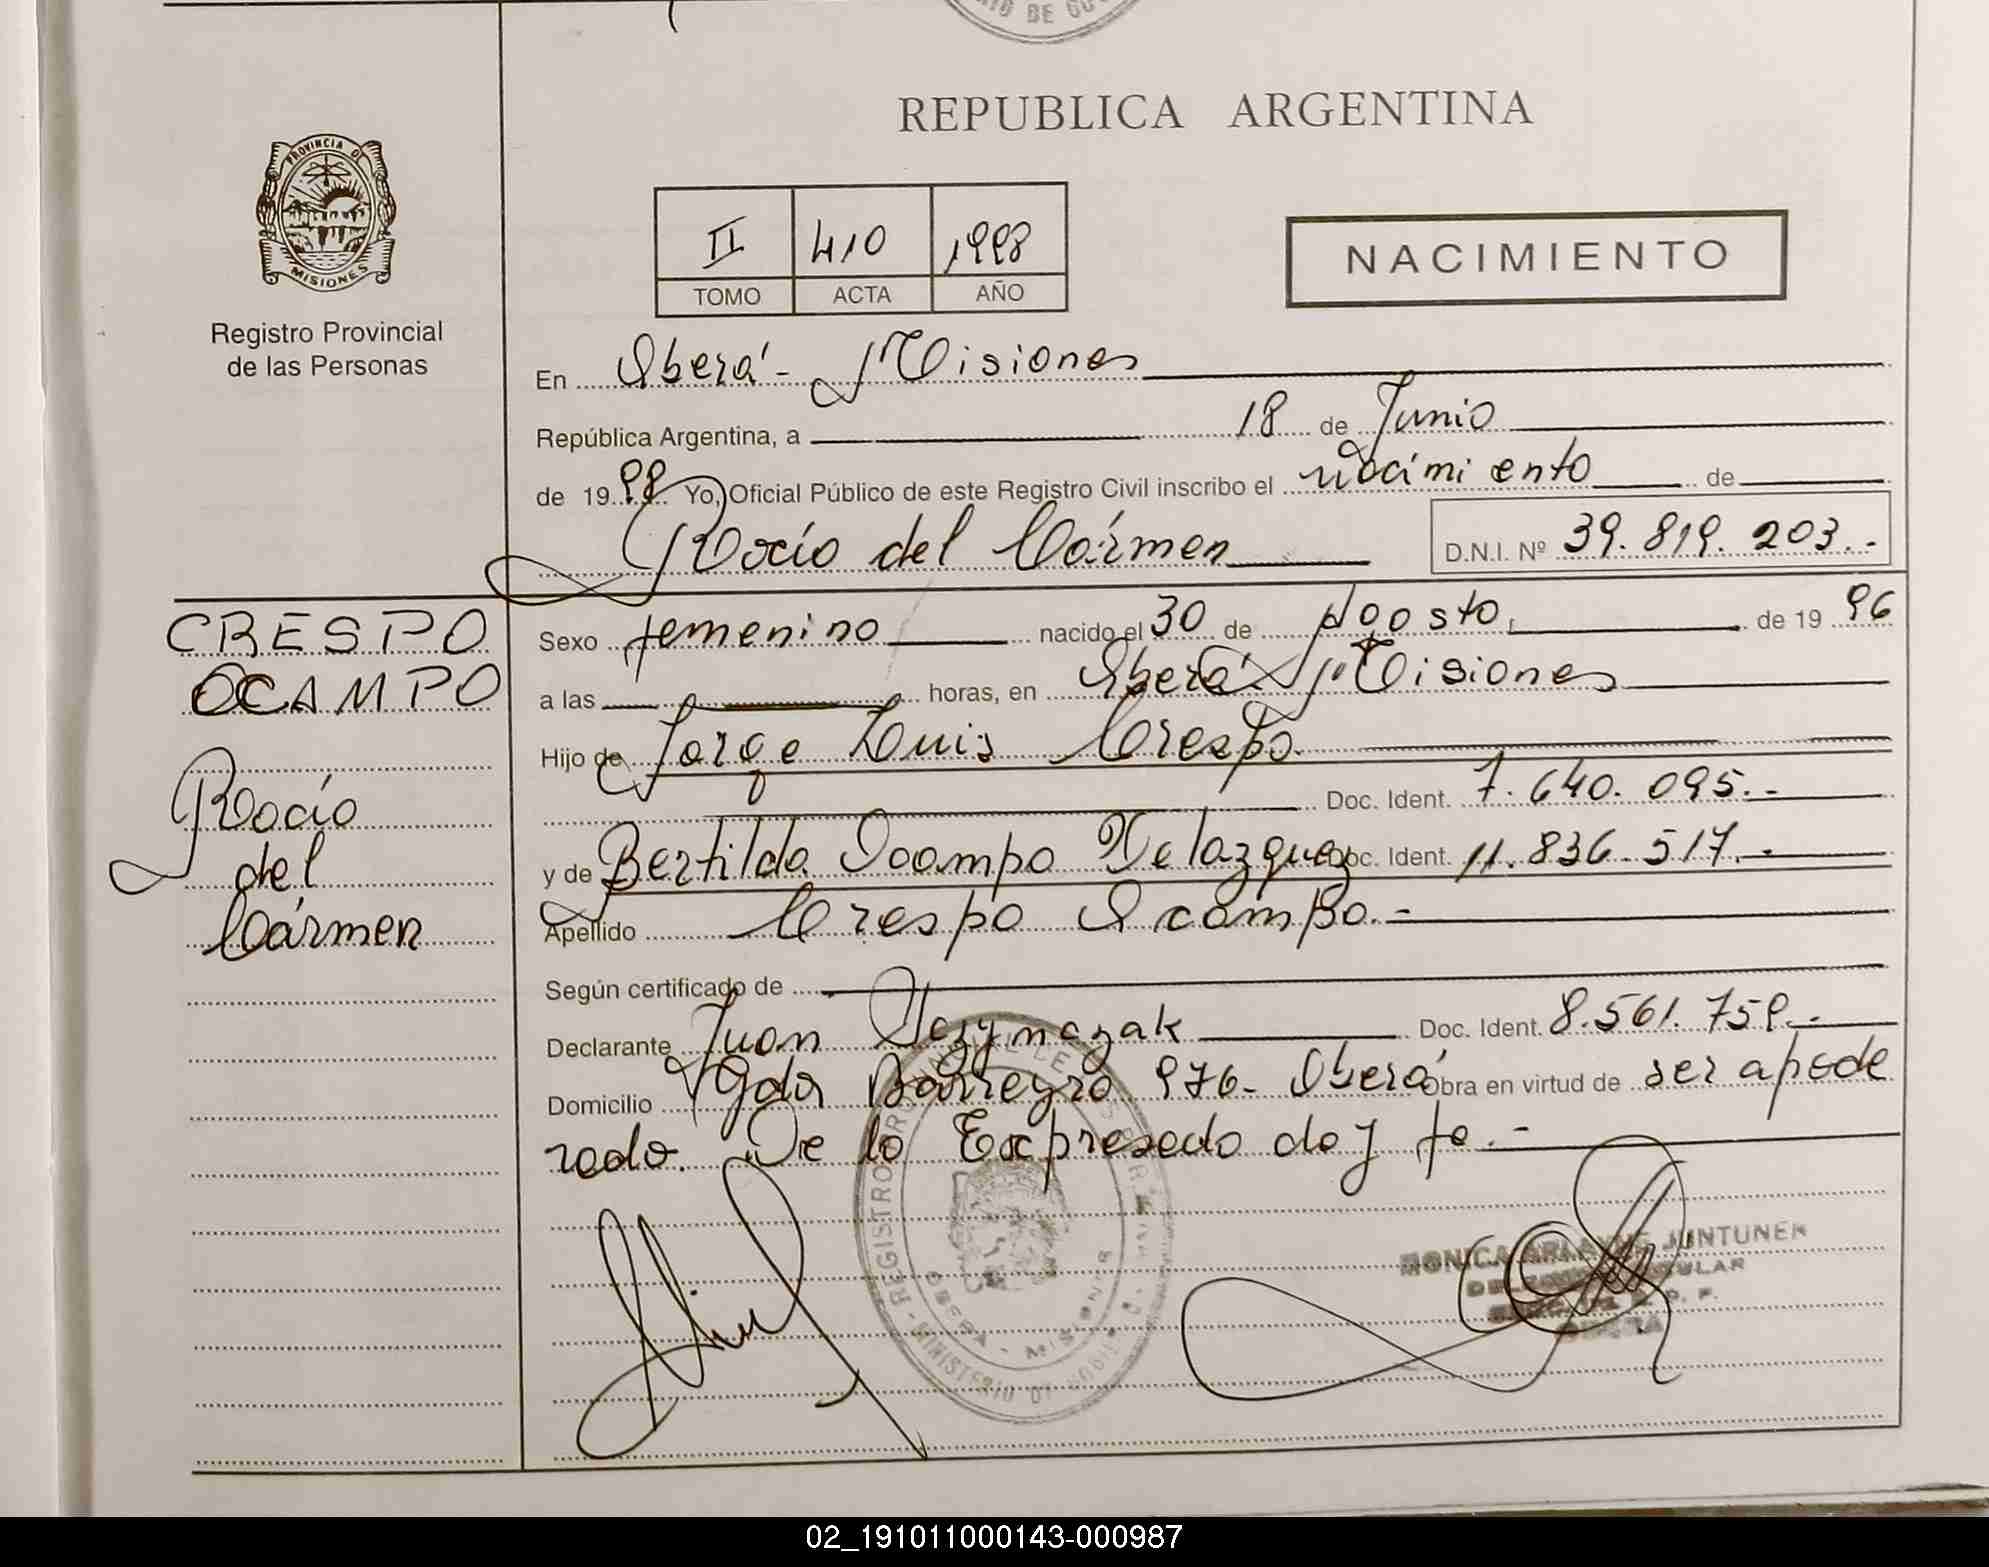 RIO DE GO
REPUBLICA ARGENTINA
PROVINCIA DE
MISIONES
Registro Provincial
de las Personas
II 410 1998
TOMO ACTA AÑO
NACIMIENTO
En Oberá - Misiones
República Argentina, a 18 de Junio
de 19 98 Yo, Oficial Público de este Registro Civil inscribo el nacimiento de
Rocío del Cármen D.N.I. Nº 39.819.203.-
CRESPO
OCAMPO
Rocío
del
Cármen
Sexo femenino nacido el 30 de Agosto, de 19 96
a las horas, en Oberá Misiones
Hijo de Jorge Luis Crespo.
Doc. Ident. 7.640.095.-
y de Bertilda Ocampo Velazquez Doc. Ident. 11.836.517.-
Apellido Crespo Ocampo.-
Según certificado de
Declarante Juan Doc. Ident. 8.561.759.-
Domicilio Barreyro 976- Oberá Obra en virtud de ser apode
rado. De lo Expresado doy fe.-
REGISTRO
OBERA - MISIONES
MINISTERIO DE GOBIE
MONICA JUNTUNEN
02_191011000143-000987